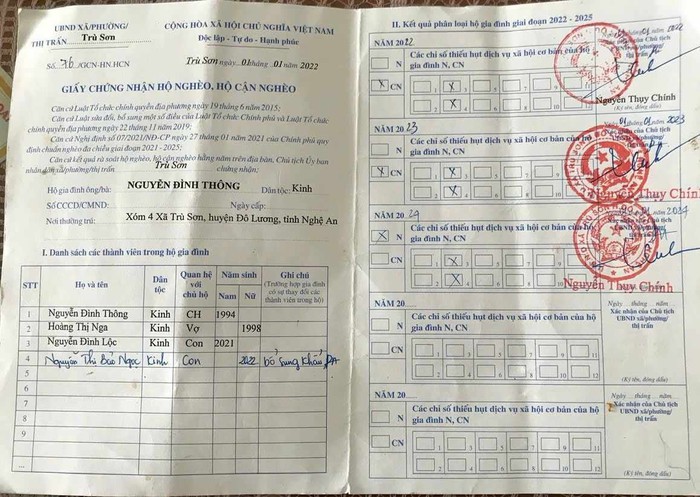 UBND XÃ/PHƯỜNG/
THỊ TRẤN Trù Sơn
CỘNG HÒA XÃ HỘI CHỦ NGHĨA VIỆT NAM
Độc lập - Tự do - Hạnh phúc
Số: 76 /GCN-HN.HCN
Trù Sơn ngày.. 01 tháng ..01 năm 2022
GIẤY CHỨNG NHẬN HỘ NGHÈO, HỘ CẬN NGHÈO
Căn cứ Luật Tổ chức chính quyền địa phương ngày 19 tháng 6 năm 2015;
Căn cứ Luật sửa đổi, bổ sung một số điều của Luật Tổ chức Chính phủ và Luật Tổ
chức chính quyền địa phương ngày 22 tháng 11 năm 2019;
Căn cứ Nghị định số 07/2021/NĐ-CP ngày 27 tháng 01 năm 2021 của Chính phủ quy
định chuẩn nghèo đa chiều giai đoạn 2021 - 2025;
Căn cứ kết quả rà soát hộ nghèo, hộ cận nghèo hằng năm trên địa bàn, Chủ tịch Ủy ban
nhân dân xã/phường/thị trấn Trù Sơn chứng nhận:
Hộ gia đình ông/bà: NGUYỄN ĐÌNH THÔNG Dân tộc: Kinh
Số CCCD/CMND: Ngày cấp:
Nơi thường trú: Xóm 4 Xã Trù Sơn, huyện Đô Lương, tỉnh Nghệ An
I. Danh sách các thành viên trong hộ gia đình
STT Họ và tên Dân tộc Quan hệ với chủ hộ Năm sinh Nam Nữ Ghi chú (Trường hợp gia đình có sự thay đổi các thành viên trong hộ)
1 Nguyễn Đình Thông Kinh CH 1994
2 Hoàng Thị Nga Kinh Vợ 1998
3 Nguyễn Đình Lộc Kinh Con 2021
4 Nguyễn Thị Bảo Ngọc Kinh Con 2022 bổ sung khẩu
5
6
7
8
9
...
II. Kết quả phân loại hộ gia đình giai đoạn 2022 - 2025
NĂM 2022
N Các chỉ số thiếu hụt dịch vụ xã hội cơ bản của hộ
gia đình N, CN
X CN X
X
Nguyễn Thụy Chính
NĂM 2023
01 tháng 01 năm 2023
N Các chỉ số thiếu hụt dịch vụ xã hội cơ bản của hộ
gia đình N, CN
X CN X
X
Nguyễn Thụy Chính
NĂM 2024
X N Các chỉ số thiếu hụt dịch vụ xã hội cơ bản của hộ
gia đình N, CN
CN X
Nguyễn Thụy Chính
NĂM 20
Ngày... tháng... năm...
Xác nhận của Chủ tịch
UBND xã/phường/
thị trấn
N Các chỉ số thiếu hụt dịch vụ xã hội cơ bản của hộ
gia đình N, CN
CN 1 3 5 7 9 11
2 4 6 8 10 12
(Ký tên, đóng dấu)
NĂM 20
Ngày... tháng... năm...
Xác nhận của Chủ tịch
UBND xã/phường/
thị trấn
N Các chỉ số thiếu hụt dịch vụ xã hội cơ bản của hộ
gia đình N, CN
CN 1 3 5 7 9 11
2 4 6 8 10 12
(Ký tên, đóng dấu)